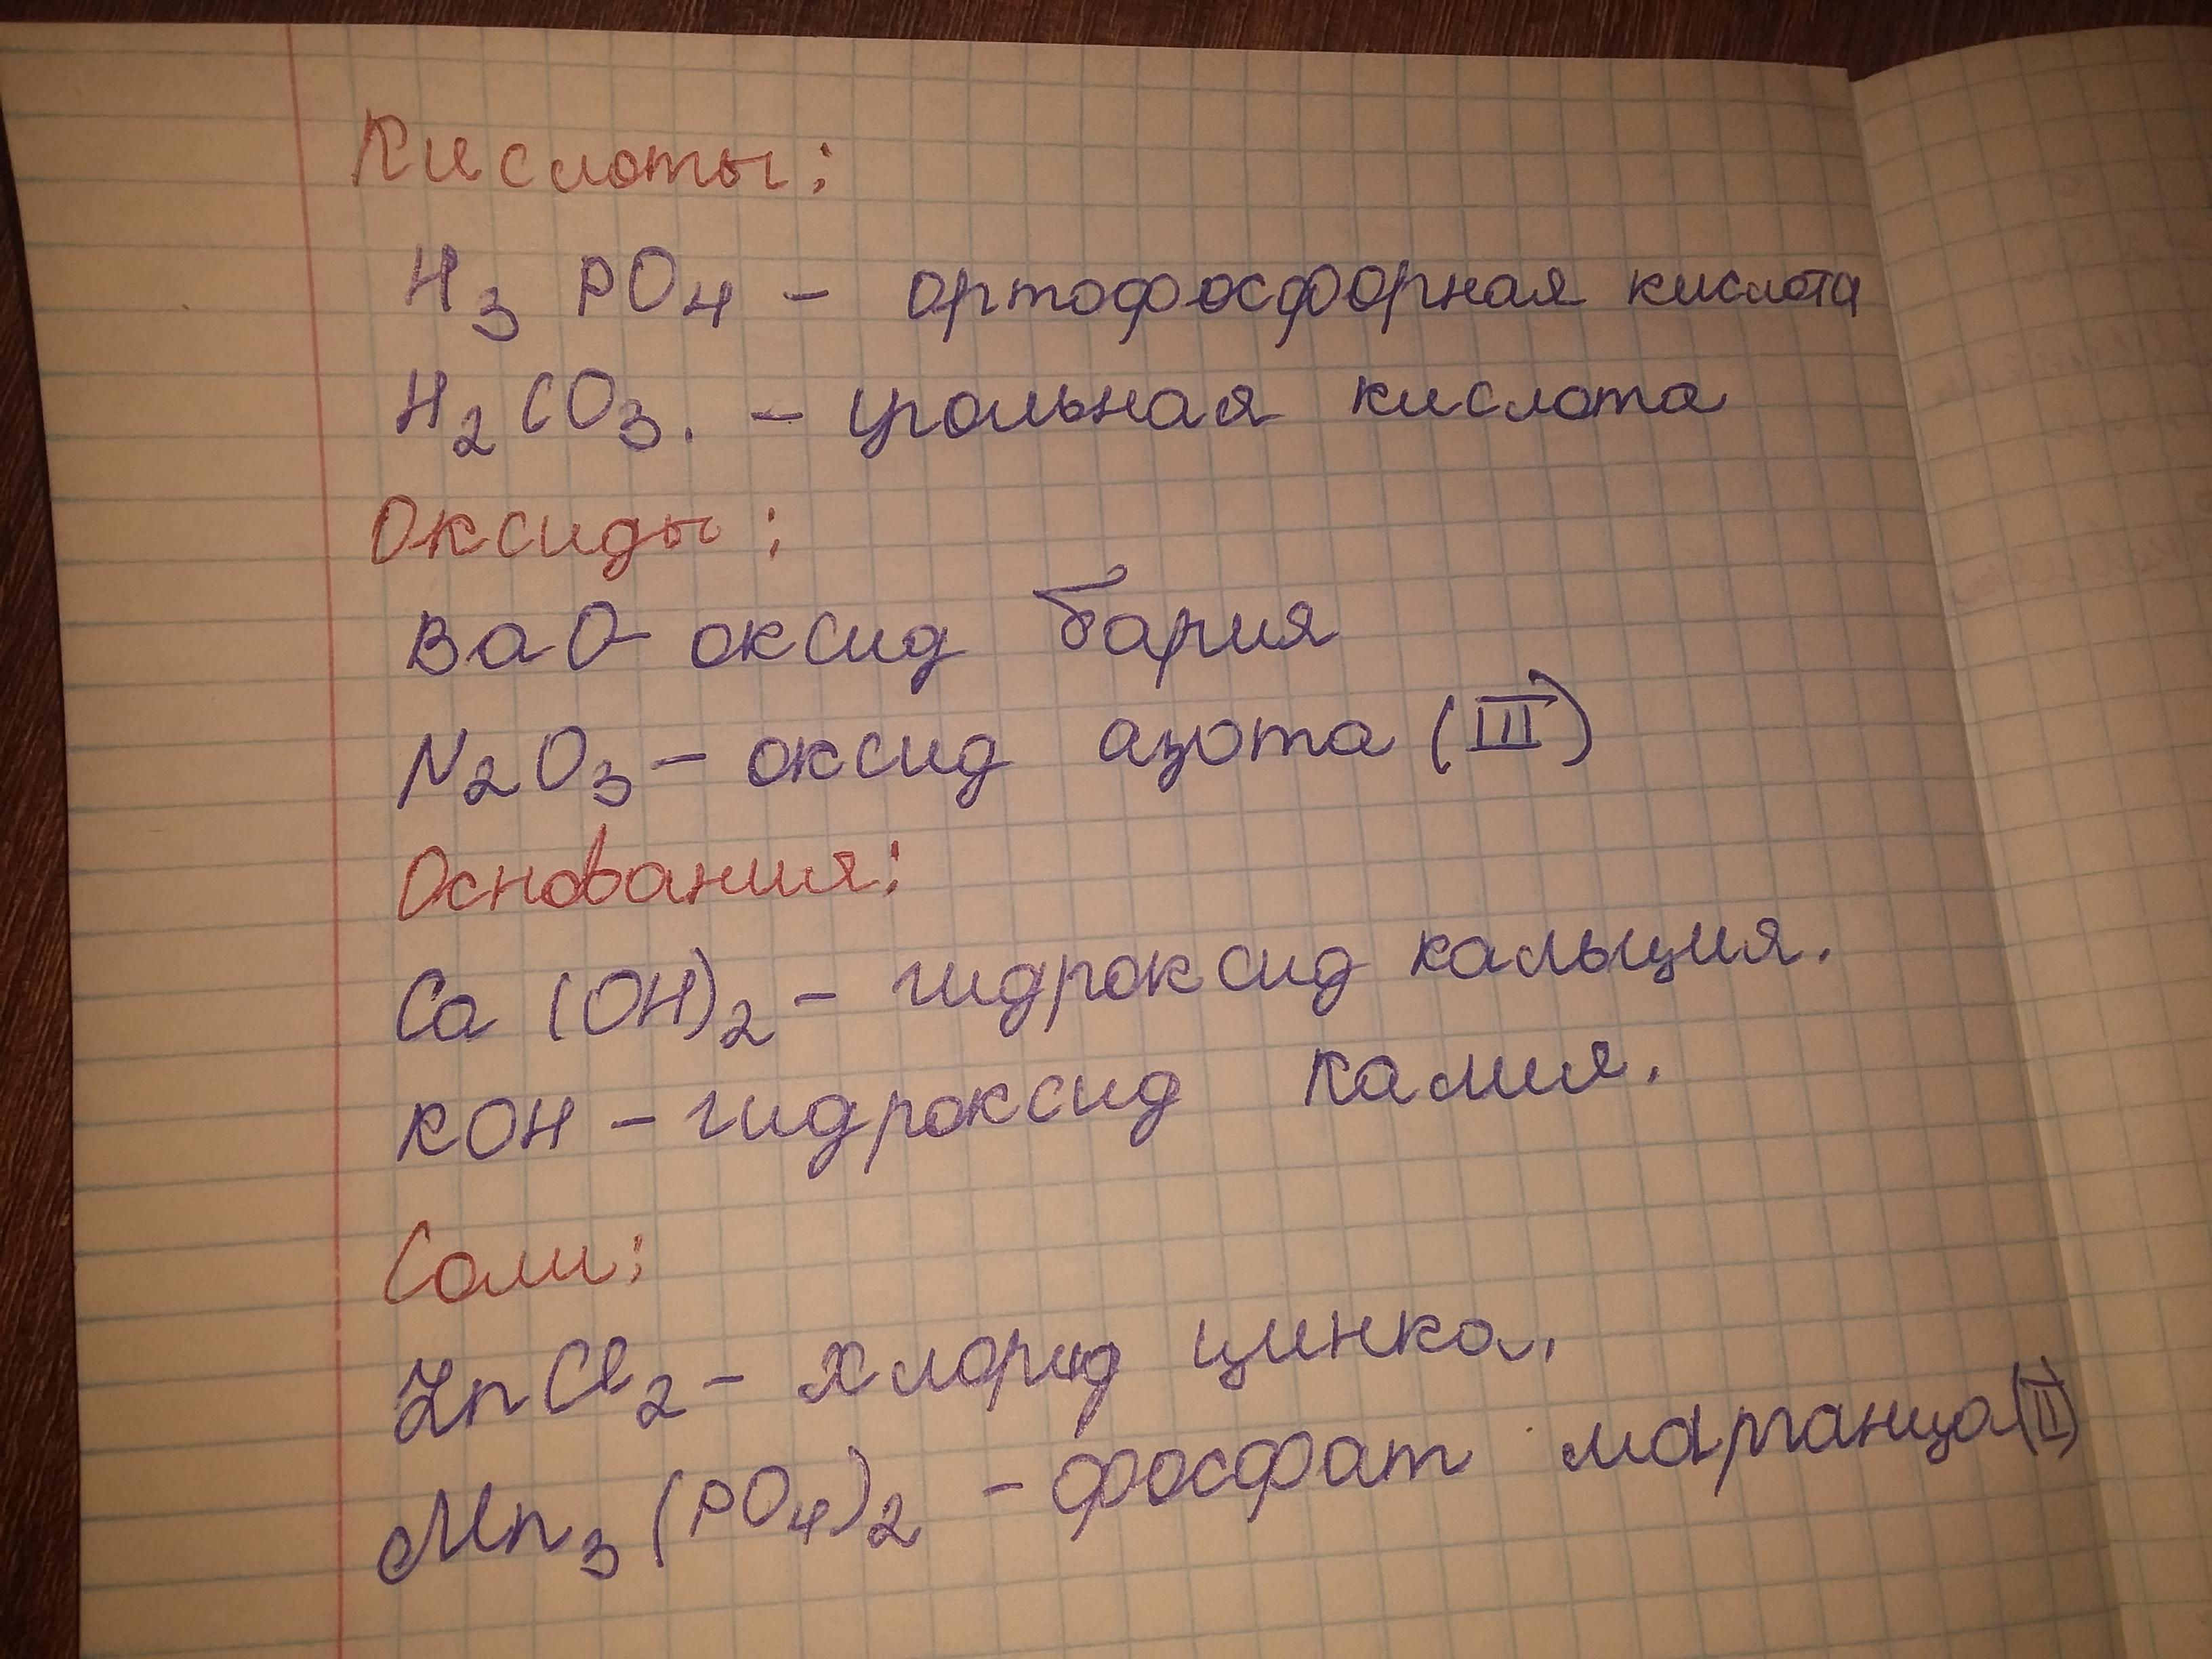 Кислоты:
H₃ PO₄ - ортофосфорная кислота
H₂CO₃. - угольная кислота
Оксиды:
BaO- оксид бария
N₂O₃ - оксид азота (III)
Основания:
Ca (OH)₂ - гидроксид кальция.
KOH - гидроксид калия.
Соли:
ZnCl₂ - хлорид цинка.
Mn₃(PO₄)₂ - фосфат марганца(II)